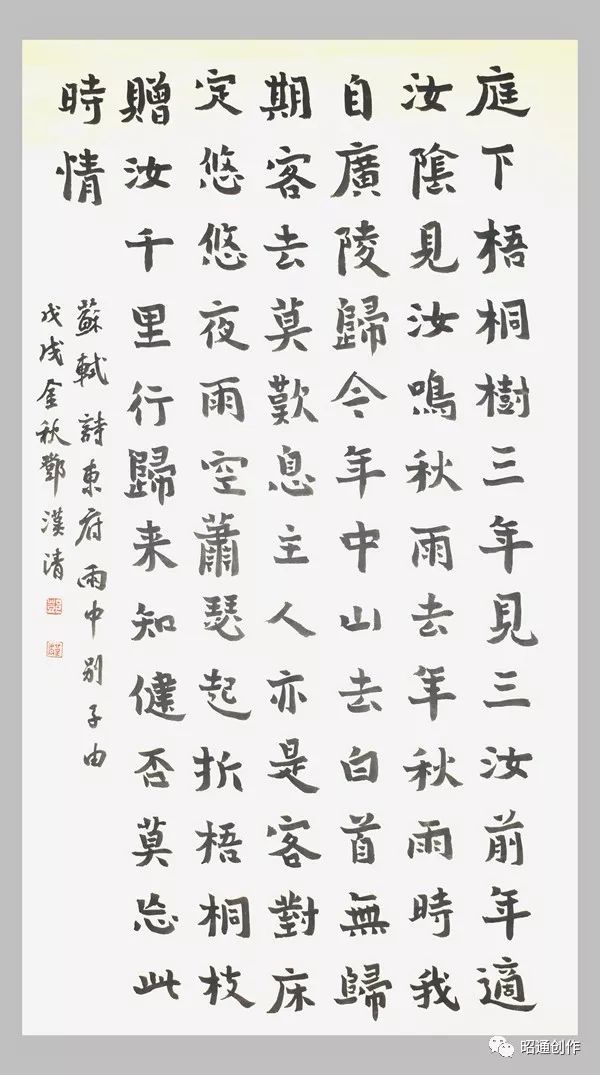 庭下梧桐樹三年見三汝前年適
汝陰見汝鳴秋雨去年秋雨時我
自廣陵歸今年中山去白首無歸
期客去莫歎息主人亦是客對床
定悠悠夜雨空蕭瑟起折梧桐枝
贈汝千里行歸来知健否莫忘此
時情
蘇軾詩東府雨中別子由
戊戌金秋鄧漢清
昭通创作